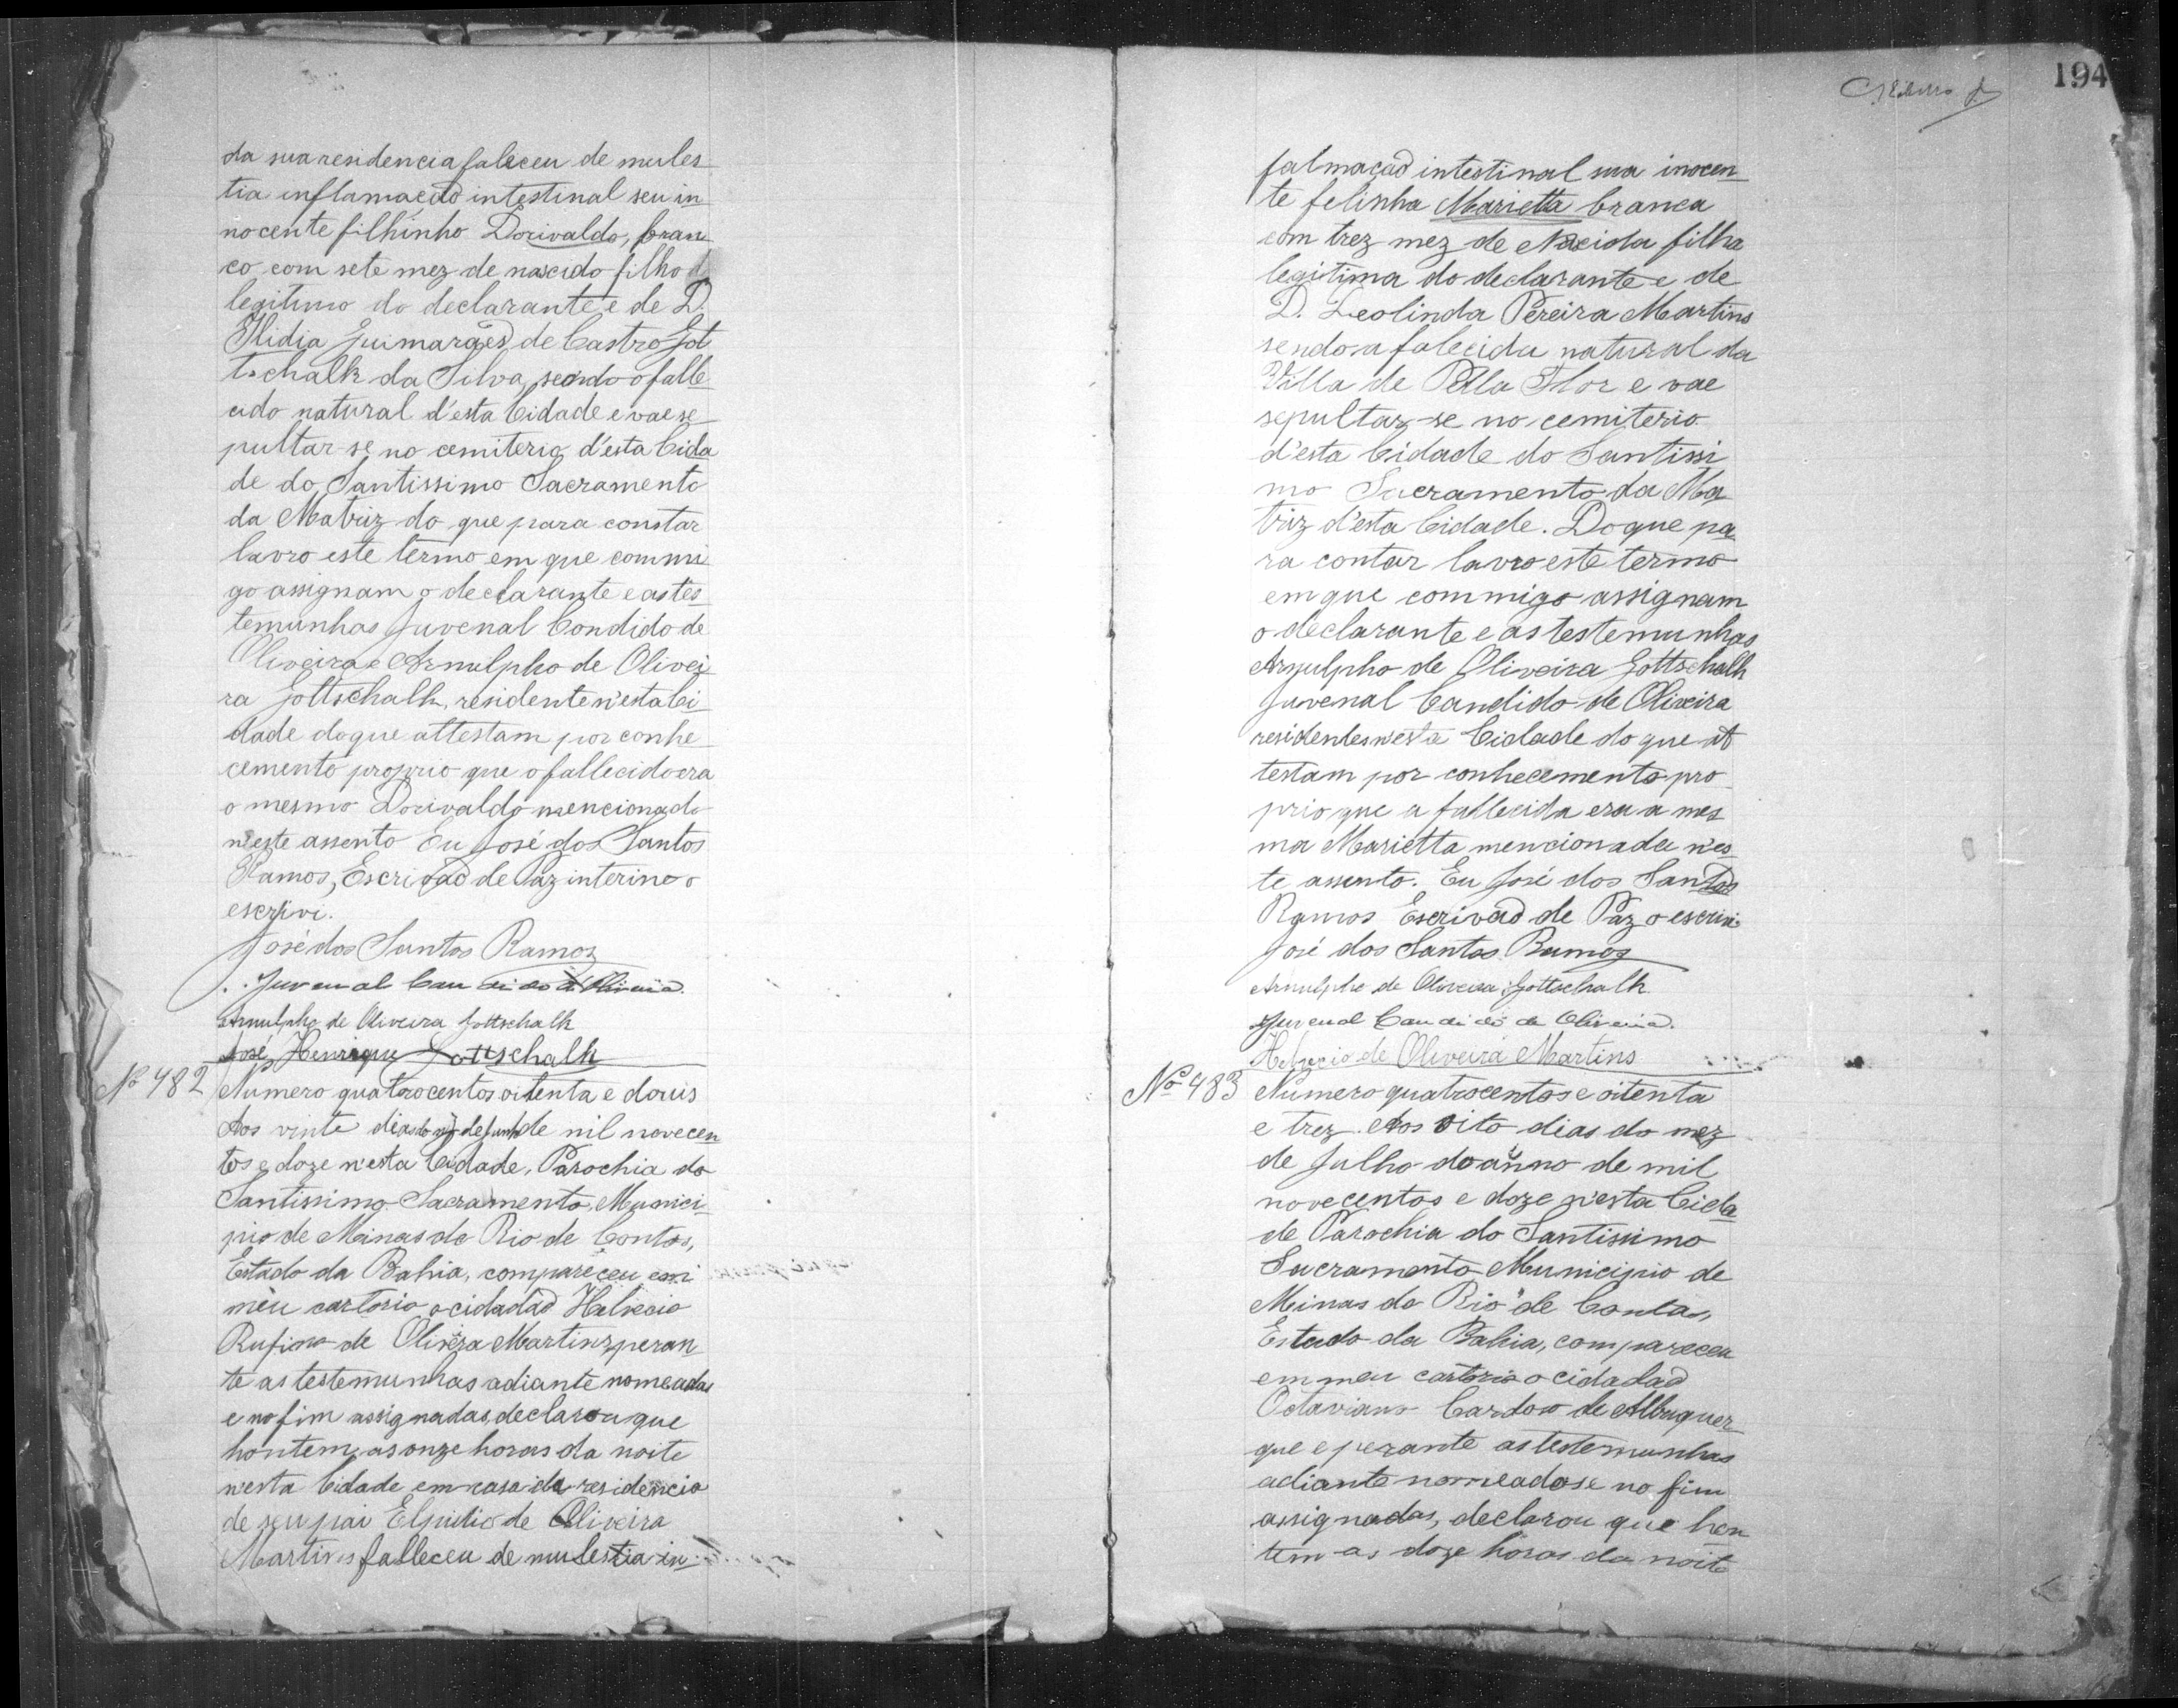 da sua residencia faleceu de moles
tia inflamação intestinal seu in
nocente filhinho Dorivaldo, bran
co com sete mez de nascido filho
legitimo do declarante e de D.
Ilidia Guimarães de Castro Got
tschalk da Silva, sendo o falle
cido natural d'esta Cidade e vae se
pultar-se no cemiterio d'esta Cida
de do Santissimo Sacramento
da Matriz do que para constar
lavro este termo em que commi
go assignam o declarante e as tes
temunhas Juvenal Condido de
Oliveira e Arnulpho de Olivei
ra Gottschalk, residente n'esta Ci
dade do que attestam por conhe
cemento proprio que o fallecido era
o mesmo Dorivaldo mencionado
n'este assento Eu José dos Santos
Ramos, Escrivaõ de Paz interino o
escrivi.
José dos Santos Ramos
Juvenal Candido de Oliveira.
Arnulpho de Oliveira Gottschalk
José Henrique Gottschalk
Nº 482 Numero quatrocentos oitenta e douis
Aos vinte dias do mez de Junho de mil novecen
tos e doze n'esta Cidade, Parochia do
Santissimo Sacramento, Munici
pio de Minas do Rio de Contas,
Estado da Bahia, compareceu em
meu cartorio o cidadão Helvecio
Rufino de Olivera Martins peran
te as testemunhas adiante nomeadas
e no fim assignadas, declarou que
hontem as onze horas da noite
n'esta Cidade em casa da residencia
de seu pai Elpidio de Oliveira
Martins falleceu de mulestia in
194
falmaçaõ intestinal sua inocen
te felinha Marietta branca
com trez mez de Nacida filha
legitima do declarante e de
D. Leolinda Pereira Martins
sendo a falecida natural da
Villa de Bella Flor e vae
sepultar-se no cemiterio
d'esta Cidade do Santissi
mo Sacramento da Ma
triz d'esta Cidade. Do que pa
ra contar lavro este termo
em que commigo assignam
o declarante e as testemunhas
Arnulpho de Oliveira Gottschalk
Juvenal Candido de Oliveira
residentes n'esta Cidade do que at
testam por conhecemento pro
prio que a fallecida era a mes
ma Marietta mencionada n'es
te assento. Eu José dos Santos
Ramos Escrivaõ de Paz o escrivi
José dos Santos Ramos
Arnulpho de Oliveira Gottschalk
Juvenal Candido de Oliveira.
Helvecio de Oliveira Martins
Nº 483 Numero quatrocentos e oitenta
e trez. Aos oito dias do mez
de Julho do anno de mil
novecentos e doze n'esta Cida
de Parochia do Santissimo
Sacramento Municipio de
Minas do Rio de Contas,
Estado da Bahia, compareceu
em meu cartorio o cidadaõ
Octaviano Cardoso de Albuquer
que e perante as testemunhas
adiante nomeadas e no fim
assignadas, declarou que hon
tem as doze horas da noite